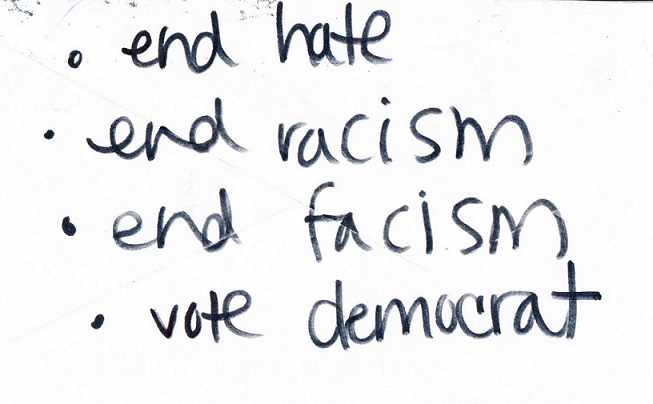 • end hate
• end racism
• end facism
• vote democrat